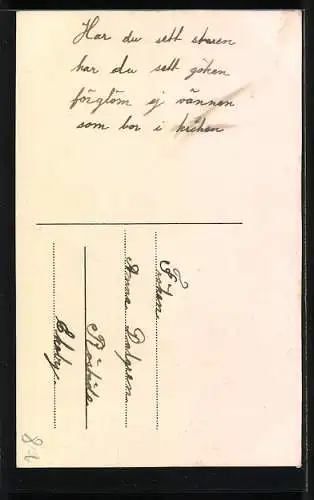 Har du sett staren
har du sett göken
förglöm ej vännen
som bor i kröken
Fröken
Anna Dalgren
Röstida
Ekeby.